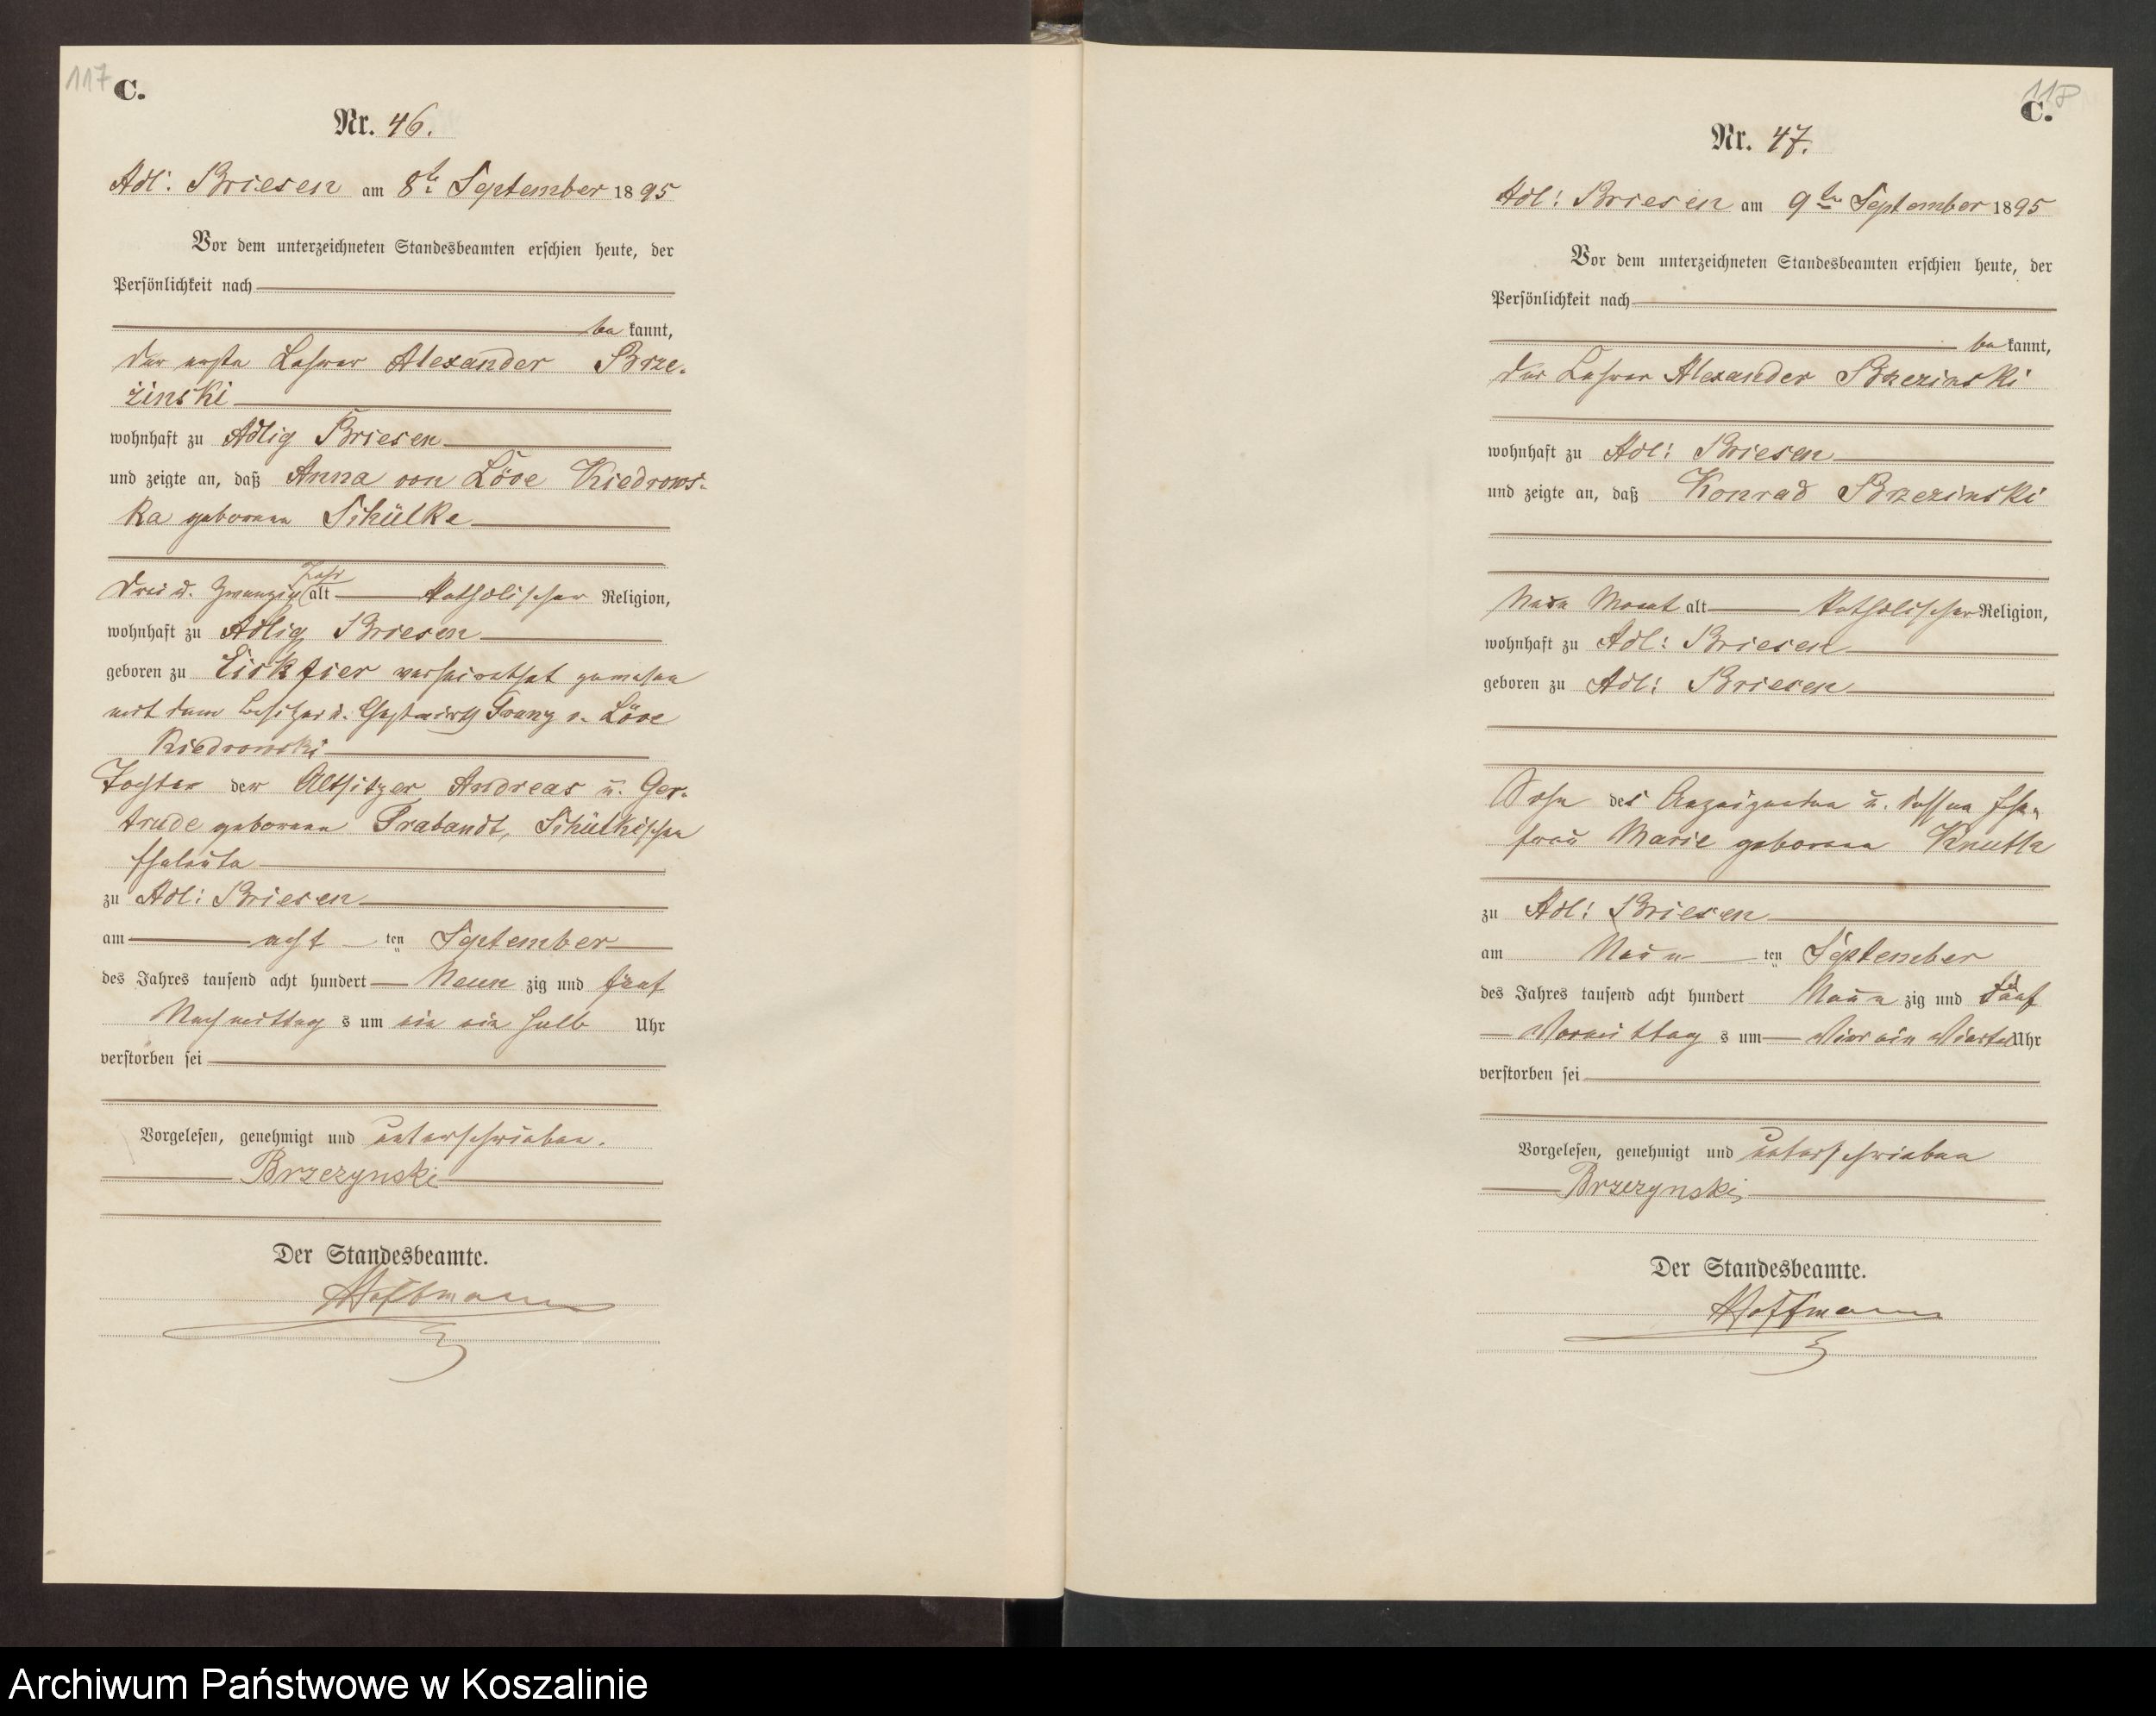 117 C.
Nr. 46.
Adl: Briesen am 8te September 1895
Vor dem unterzeichneten Standesbeamten erschien heute, der
Persönlichkeit nach
be kannt,
der erste Lehrer Alexander Brze-
zinski
wohnhaft zu Adlig Briesen
und zeigte an, daß Anna von Löve Kiedrows-
ka geborene Schülke
Jahr
drei u. zwanzig alt katholischer Religion,
wohnhaft zu Adlig Briesen
geboren zu verheirathet gewesen
mit dem Besitzer u. Gastwirth Franz v. Löve
Kiedrowski
Tochter der Altsitzer Andreas u. Ger-
trude geborene Trabandt, Schülkeschen
Eheleute
zu Adl: Briesen
am acht ten September
des Jahres tausend acht hundert Neun zig und fünf
Nachmittag s um ein ein halb Uhr
verstorben sei
Vorgelesen, genehmigt und unterschrieben.
Brzezynski
Der Standesbeamte.
Hoffmann
118
C.
Nr. 47.
Adl: Briesen am 9ten September 1895
Vor dem unterzeichneten Standesbeamten erschien heute, der
Persönlichkeit nach
be kannt,
der Lehrer Alexander Brzezinski
wohnhaft zu Adl: Briesen
und zeigte an, daß Konrad Brzezinski
Monat alt katholischer Religion,
wohnhaft zu Adl: Briesen
geboren zu Adl: Briesen
Sohn des Anzeigenden u. dessen Ehe-
frau Marie geborene Knuth
zu Adl: Briesen
am Neun ten September
des Jahres tausend acht hundert Neun zig und fünf
Vormittag s um Vier ein Viertel Uhr
verstorben sei
Vorgelesen, genehmigt und unterschrieben
Brzezynski
Der Standesbeamte.
Hoffmann
Archiwum Państwowe w Koszalinie